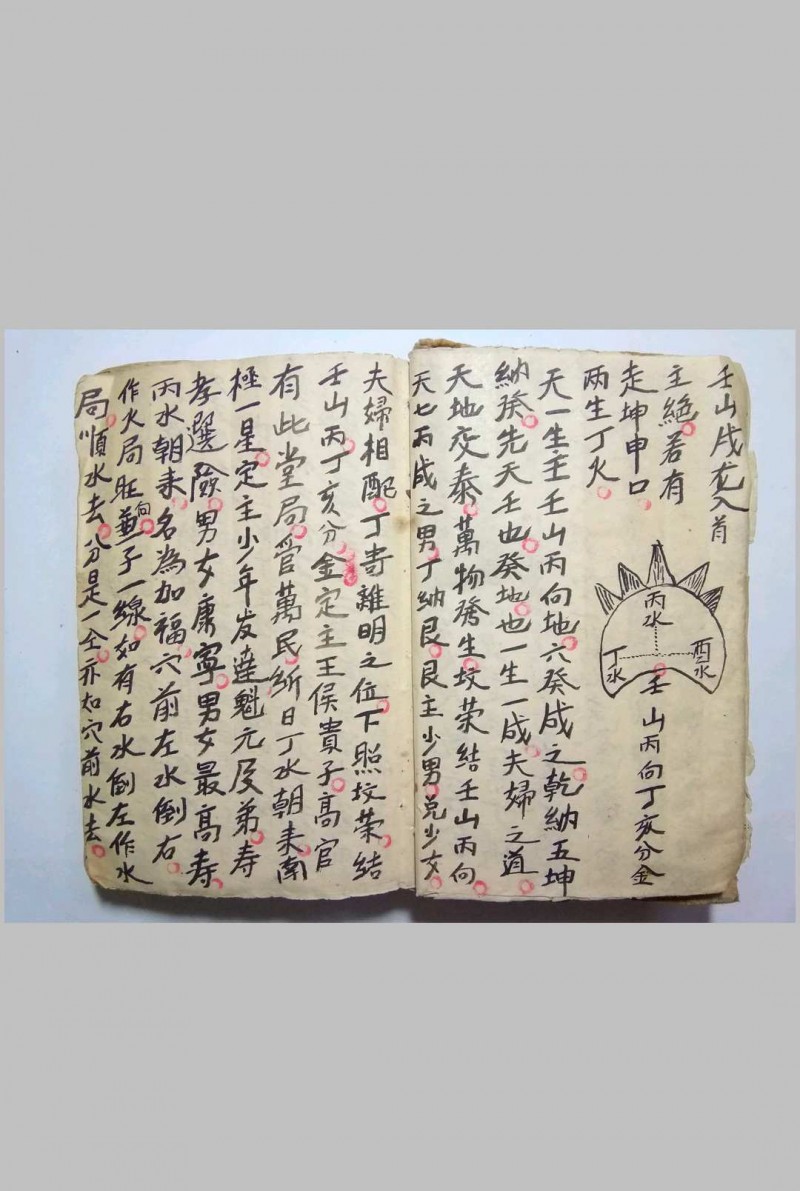 壬山戌龙入首
主絶若有
走坤申口
两生丁火
丙水
丁水
酉水
壬山丙向丁亥分金
天一生主壬山丙向地六癸成之乾納五坤
納癸先天壬也癸地也一生一成夫婦之道
天地交泰萬物發生坟荣结壬山丙向
天七丙成之男丁納艮艮主少男兑少女
夫婦相配丁寄離明之位下照坟荣結
壬山丙丁亥分金定主王侯貴子高官
有此堂局管萬民斫日丁水朝来南
極一星定主少年发達魁元及弟寿
孝選險男女康寧男女最高寿
丙水朝来名為加福穴前左水倒右
作火局旺向兼子一線如有右水倒左作水
局順水去分是一仝亦如穴前水去